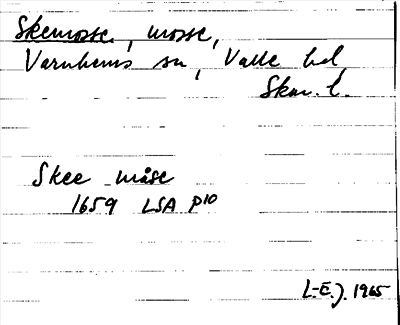 Skemosse, mosse,
Varnhems sn, Valle hd,
Skar. l.
Skee måse
1659 LSA P10
L-E.J. 1965